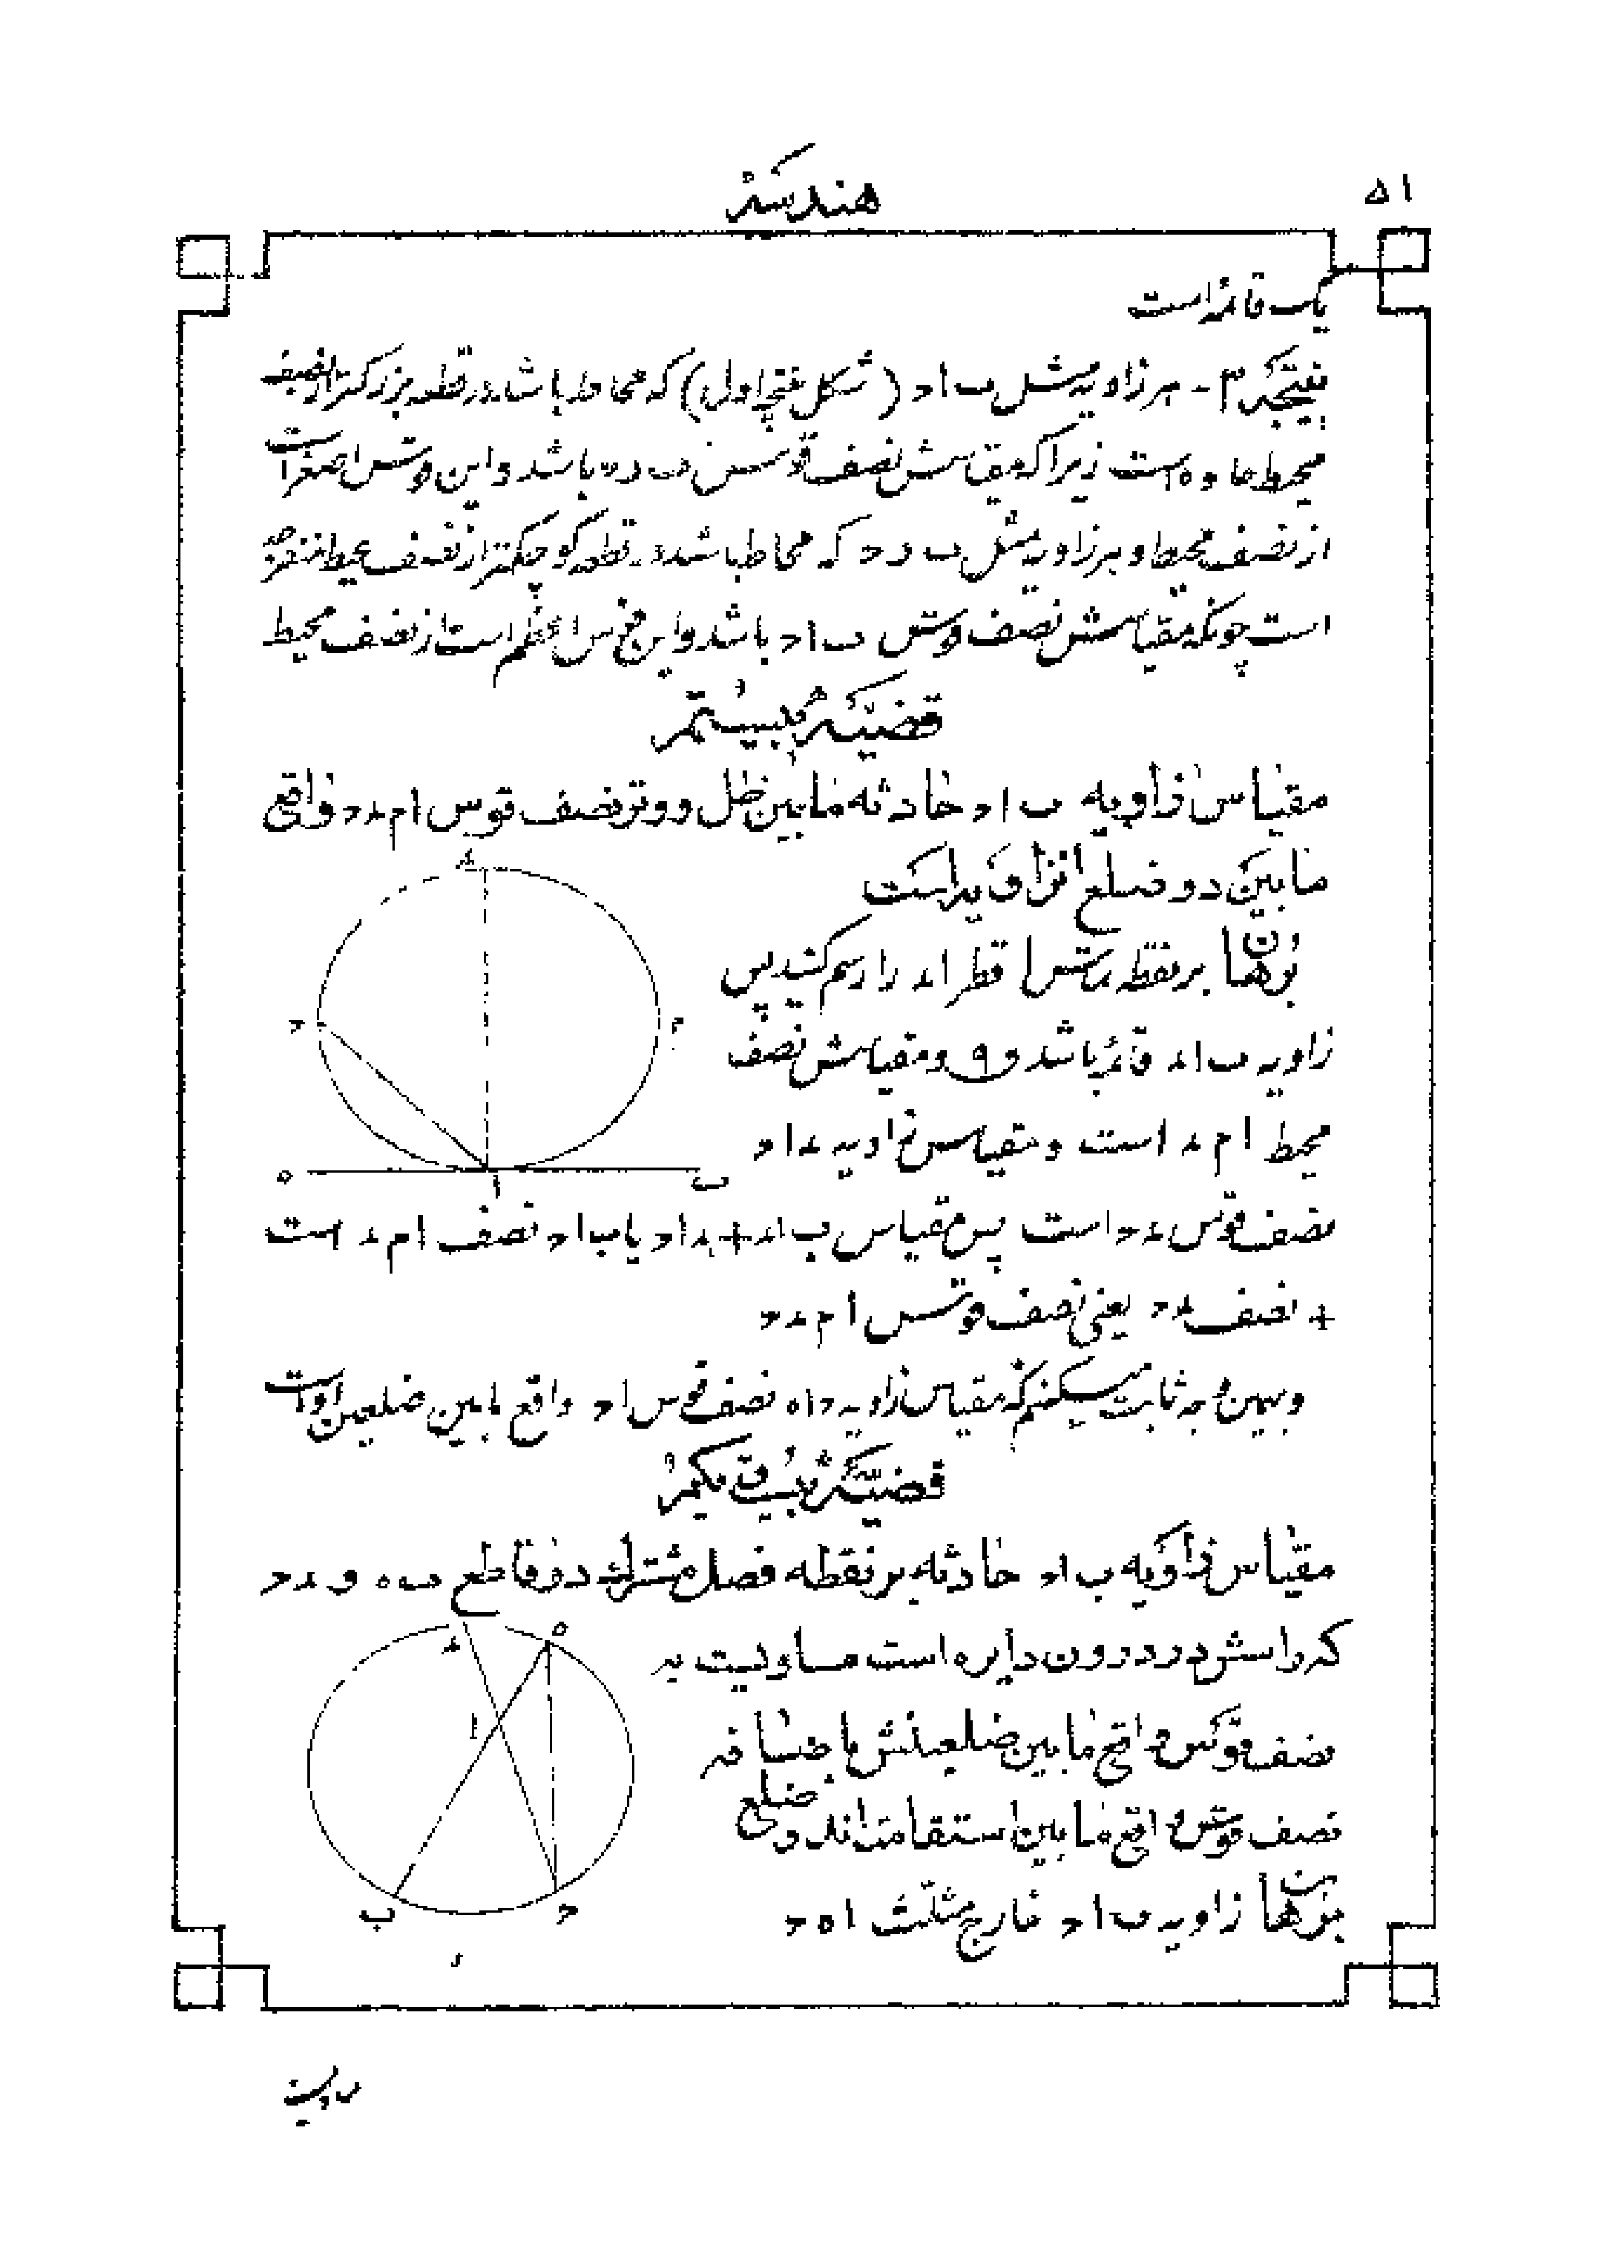 ۵۱
هندسه
یک قائمه است
نتیجه ۳ - هر زاویه مثل ب ا د (شکل اول) که محاط باشد در قطعه بزرگتر از نصف
محیط حاده است زیرا که مقیاسش نصف قوس ب ده باشد و این قوس اصغر است
از نصف محیط و هر زاویه مثل ب د ح که محاط باشد در قطعه کوچکتر از نصف محیط منفرجه
است چونکه مقیاسش نصف قوس ب ا ح باشد و این قوس اعظم است از نصف محیط
قضیه بیستم
مقیاس زاویه ب ا ح حادثه مابین ظل و وتر نصف قوس ا م ء ح واقع
مابین دو ضلع انزاویه است
برهان بر نقطه تماس ا قطر ا ء را رسم کنید پس
زاویه ب ا ء قائمه باشد و مقیاسش نصف
محیط ا م ء است و مقیاس زاویه ء ا ح
نصف قوس ء ح است پس مقیاس ب ا ء + ء ا ح یا ب ا ح نصف ا م ء است
+ نصف ء ح یعنی نصف قوس ا م ء ح
و بهمین وجه ثابت میکنم که مقیاس زاویه ح ا ه نصف قوس ا ح واقع مابین ضلعین اوست
قضیه بیست و یکم
مقیاس زاویه ب ا ح حادثه بر نقطه فصل مشترک دو قاطع ب ه و ء ح
که راسش در درون دایره است مساویست به
نصف قوس واقع مابین ضلعینش باضافه
نصف قوس واقع مابین استقامت اندو ضلع
برهان زاویه ب ا ح خارج مثلث ا ه ح
ء
ح
م
ه
ا
ب
ء
ه
ا
ب
ح